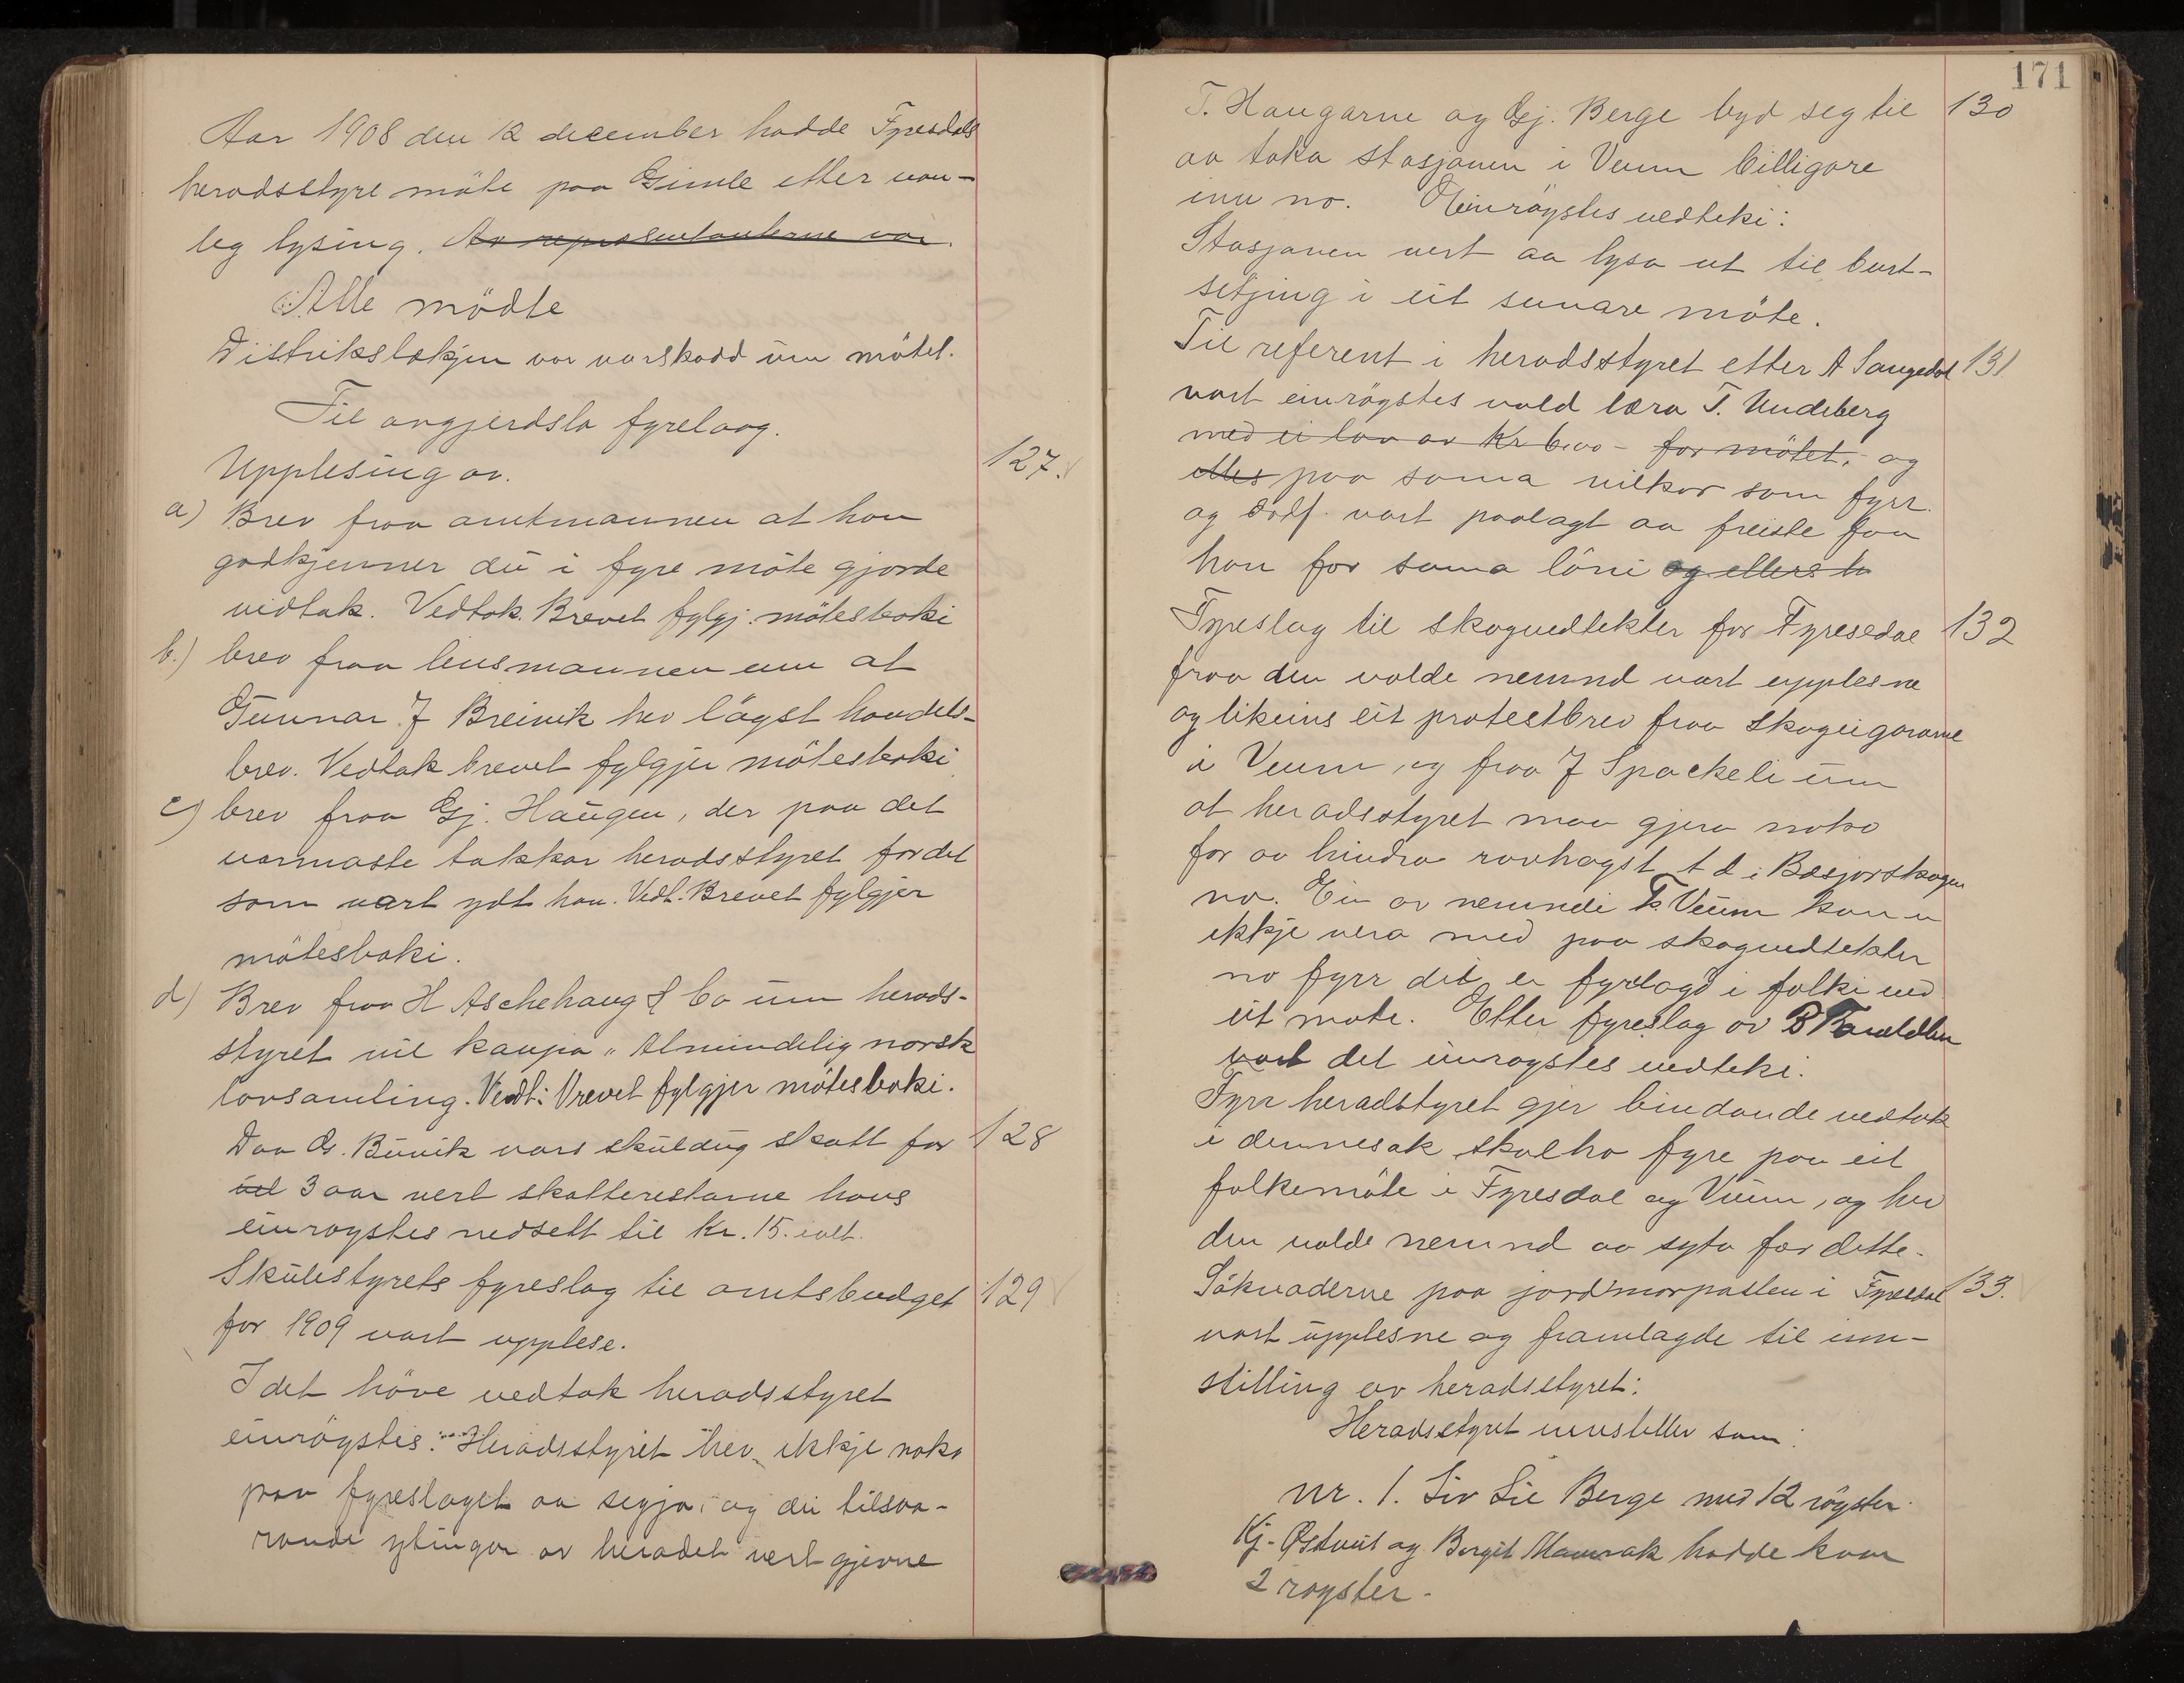 Aar 1908 den 12 december hadde Fyresdals
heradsstyre möte paa Gimle etter van-
leg lysing. Av representanterne var.
Alle mödte
Distrikslækjen var varskadd um mötet.
Til avgjerdsla fyrelaag.
Upplesing av.
127.
a) Brev fraa amtmannen at han
godkjenner dei i fyre möte gjorde
vidtak. Vedtok. Brevet fylgj. mötesboki
b.) brev fraa lensmannen um at
Gunnar J Breivik hev lögst handels-
brev. Vedtok brevet fylgjer mötesboki
c) brev fraa Gj. Haugen, der paa det
varmaste takkar heradsstyret for det
som vart ydt han. Vedt. Brevet fylgjer
mötesboki.
d) Brev fraa H Aschehaug & Co um herads-
styret vil kaupa "Almindelig norsk
lovsamling. Vedt: Brevet fylgjer mötesboki.
Daa G. Buvik vars skuldug skatt for 128
3 aar vert skatterestarne hans
einrøystes nedsett til kr. 15. ialt.
Skulestyrets fyreslag til amtsbudget 129
for 1909 vart upplese.
I det höve vedtok heradsstyret
einröystes: Heradsstyret hev ikkje noko
paa fyreslaget aa segja, og dei tilsva-
rande ytingar av heradet vert gjevne
171
T. Haugarne og Gj. Berge byd seg til 130
aa taka stasjonen i Veum billigare
enn no. Einröystes vedteki:
Stasjonen vert aa lysa ut til burt-
setjing i eit sunare möte.
Til referent i heradsstyret etter A Saugedal 131
vart einröystes vald læra T. Undeberg
med ei løn av Kr 6.00 - for mötet, og
elles paa sama vilkor som fyrr.
og ordf. vart paalagt aa freiste faa
han for sama löni og ellers to
Fyreslag til skogvedtekter for Fyresdal 132
fraa den valde nemnd vart upplesne
og likeins eit protestbrev fraa skogeigarane
i Veum, og fraa J Spockeli um
at heradsstyret maa gjera noko
for aa hindra rovhogst t d i Bæsjorskogen
no. Ein av nemndi T. Veum kann
ikkje vera med paa skogvedtekter
no fyrr dei er fyrelagd i folki ved
eit möte. Etter fyreslag av B
vart det einrøystes vedteki:
Fyrr heradstyret gjer bindande vedtak
i denne sak skal ho fyre paa eit
folkemöte i Fyresdal og Veum, og hev
den valde nemnd aa syta for dette.
Sökjaderne paa jordmorposten i Fyresdal 133.
vart upplesne og framlagde til inn-
stilling av heradsstyret:
Heradsstyret innstiller som:
nr. 1. Liv Lie Berge med 12 röyster.
Kj. Østveit og Borgit Mamrak hadde kvar
2 røyster.